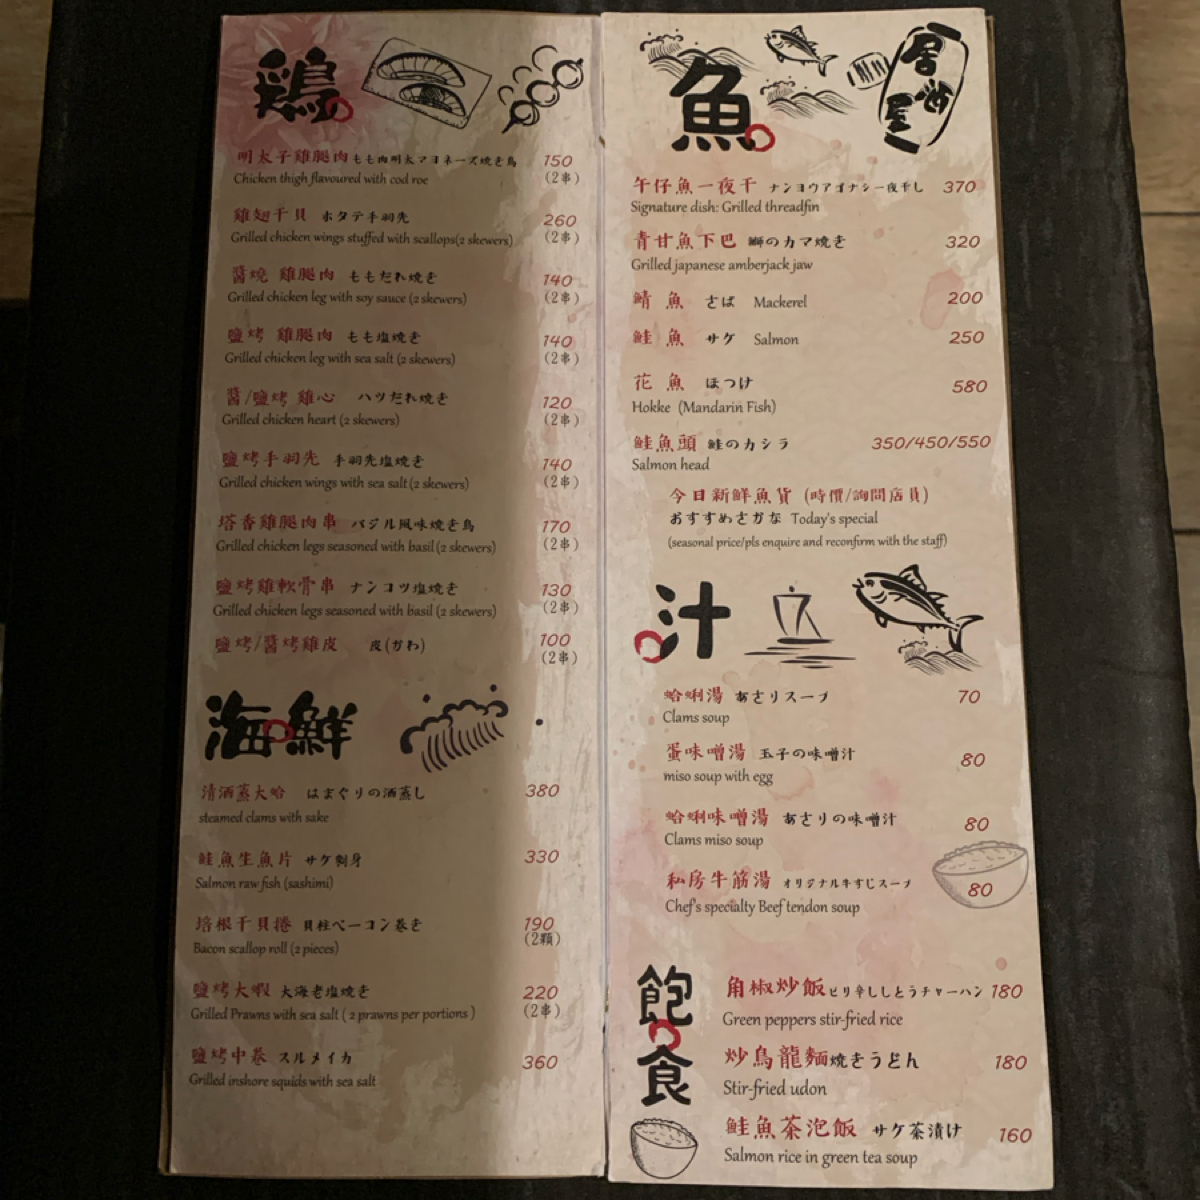 鶏
明太子雞腿肉 もも肉明太マヨネーズ焼き鳥 150
Chicken thigh flavoured with cod roe (2串)
雞翅干貝 ホタテ手羽先 260
Grilled chicken wings stuffed with scallops(2 skewers) (2串)
醬燒 雞腿肉 ももだれ焼き 140
Grilled chicken leg with soy sauce (2 skewers) (2串)
鹽烤 雞腿肉 もも塩焼き 140
Grilled chicken leg with sea salt (2 skewers) (2串)
醬/鹽烤 雞心 ハツだれ焼き 120
Grilled chicken heart (2 skewers) (2串)
鹽烤手羽先 手羽先塩焼き 140
Grilled chicken wings with sea salt (2 skewers) (2串)
塔香雞腿肉串 バジル風味焼き鳥 170
Grilled chicken legs seasoned with basil (2 skewers) (2串)
鹽烤雞軟骨串 ナンコツ塩焼き 130
Grilled chicken legs seasoned with basil (2 skewers) (2串)
鹽烤/醬烤雞皮 皮(かわ) 100
(2串)
海鮮
清酒蒸大蛤 はまぐりの酒蒸し 380
steamed clams with sake
鮭魚生魚片 サケ刺身 330
Salmon raw fish (sashimi)
培根干貝捲 貝柱ベーコン巻き 190
Bacon scallop roll (2 pieces) (2顆)
鹽烤大蝦 大海老塩焼き 220
Grilled Prawns with sea salt ( 2 prawns per portions ) (2串)
鹽烤中卷 スルメイカ 360
Grilled inshore squids with sea salt
魚
居酒屋
午仔魚一夜干 ナンヨウアゴナシ一夜干し 370
Signature dish: Grilled threadfin
青甘魚下巴 鰤のカマ焼き 320
Grilled japanese amberjack jaw
鯖 魚 さば Mackerel 200
鮭 魚 サケ Salmon 250
花 魚 ほつけ 580
Hokke (Mandarin Fish)
鮭魚頭 鮭のカシラ 350/450/550
Salmon head
今日新鮮魚貨 (時價/詢問店員)
おすすめさかな Today's special
(seasonal price/pls enquire and reconfirm with the staff)
汁
蛤蜊湯 あさりスープ 70
Clams soup
蛋味噌湯 玉子の味噌汁 80
miso soup with egg
蛤蜊味噌湯 あさりの味噌汁 80
Clams miso soup
私房牛筋湯 オリジナル牛すじスープ 80
Chef's specialty Beef tendon soup
飽食
角椒炒飯 ピリ辛ししとうチャーハン 180
Green peppers stir-fried rice
炒烏龍麵 焼きうどん 180
Stir-fried udon
鮭魚茶泡飯 サケ茶漬け 160
Salmon rice in green tea soup